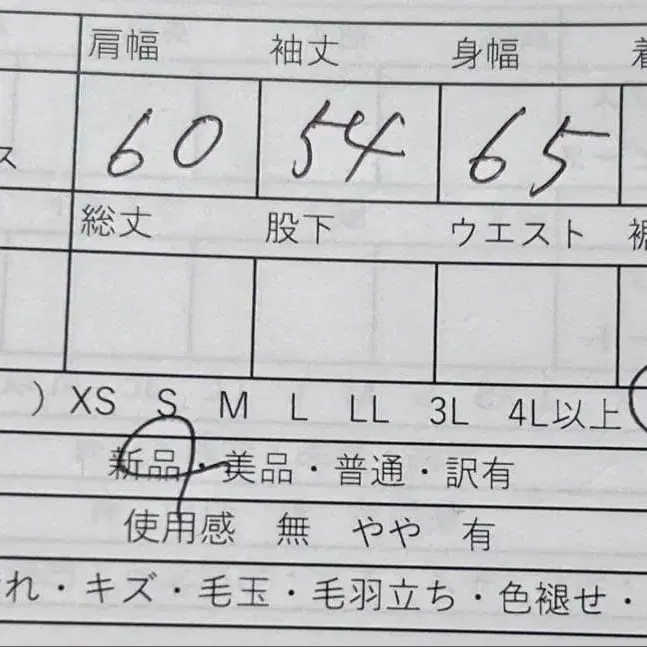 肩幅 袖丈 身幅 着
ス 60 54 65
総丈 股下 ウエスト 裾
) XS S M L LL 3L 4L以上
新品・美品・普通・訳有
使用感 無 やや 有
れ・キズ・毛玉・毛羽立ち・色褪せ・